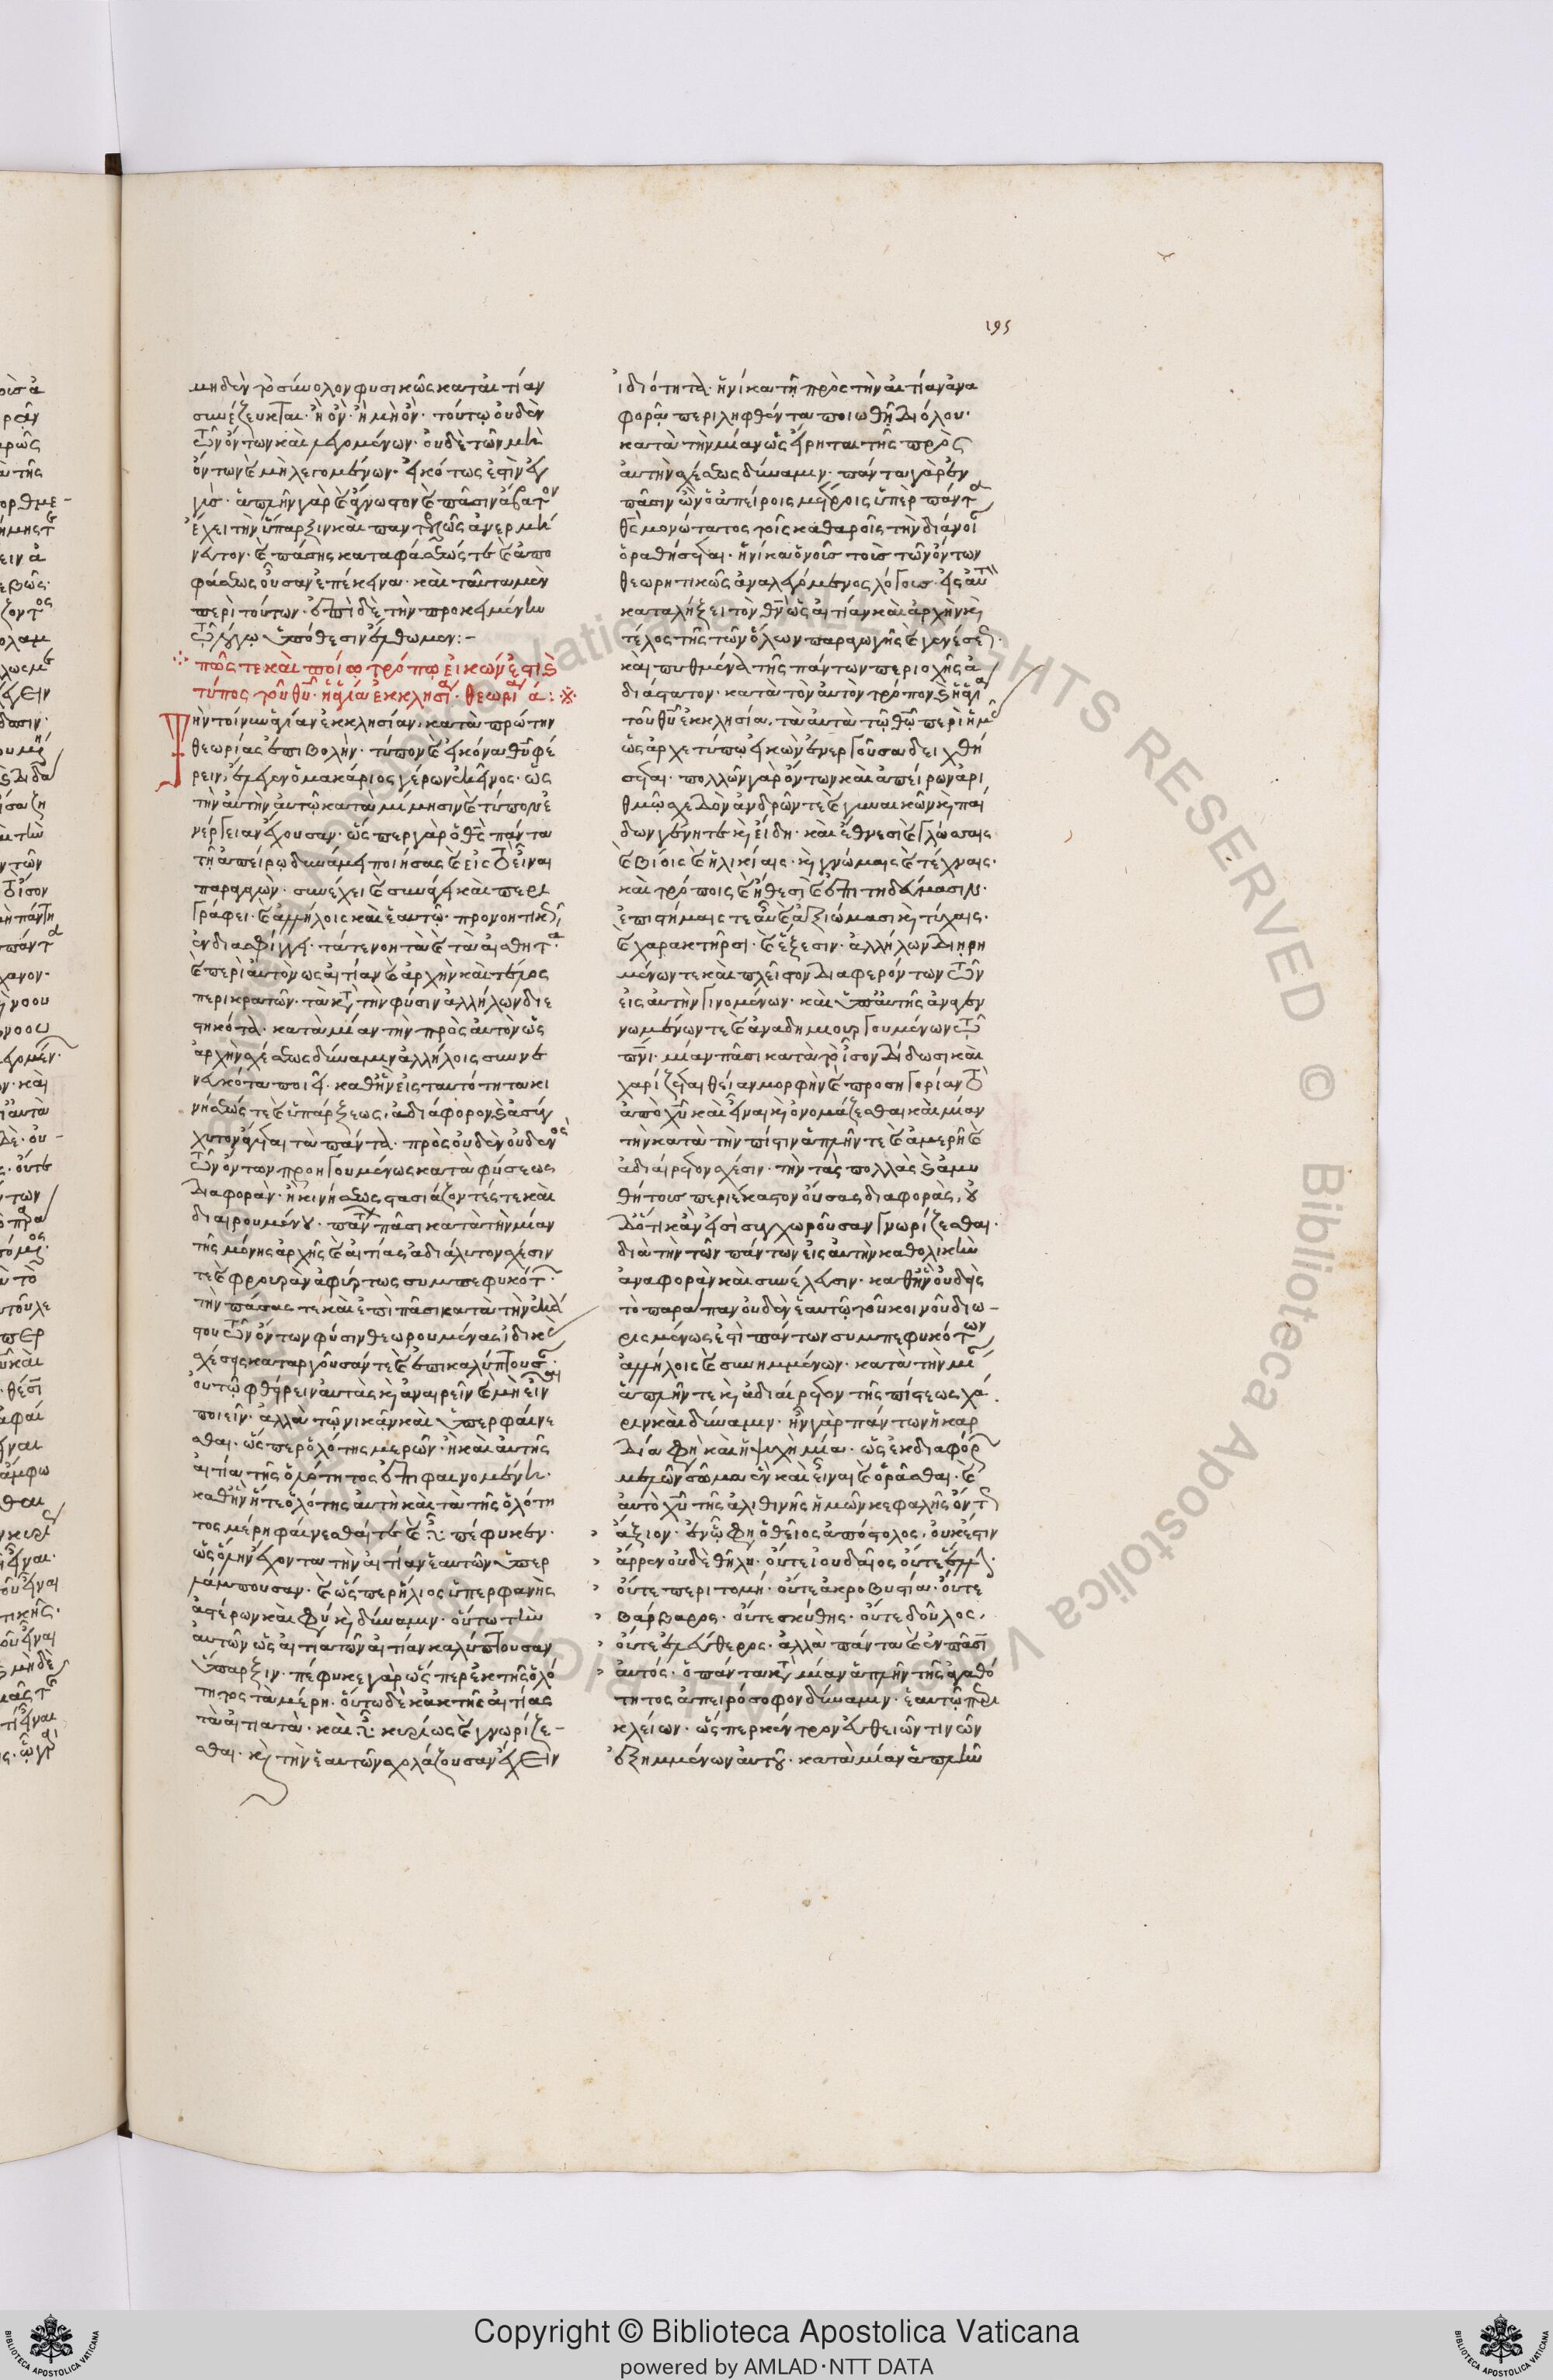 195
μηδὲν τὸ σύνολον φυσικῶς κατ' αἰτίαν
συνέζευκται· ἢ ὂν· ἢ μὴ ὄν· τούτω οὐδὲν
τῶν ὄντων καὶ λεγομένων· οὐδὲ τῶν μὴ
ὄντων καὶ μὴ λεγομένων· εἰκότως ἐστὶν ἐγ
γύς· ἁπλῆν γὰρ καὶ ἄγνωστον καὶ πᾶσιν ἄβατον
ἔχει τὴν ὕπαρξιν καὶ παντελῶς ἀνερμή
νευτον· καὶ πάσης καταφάσεώς τε καὶ ἀπο
φάσεως οὖσαν ἐπέκεινα· καὶ ταῦτα μὲν
περὶ τούτων· ἐπὶ δὲ τὴν προκειμένην
τῶ λόγω ὑπόθεσιν ἔλθωμεν:-
πῶς τε καὶ ποίω τρόπω εἰκών ἐστι καὶ
τύπος τοῦ θῦ ἡ ἁγία ἐκκλησία· θεωρία α:
Τὴν τοίνυν ἁγίαν ἐκκλησίαν, κατὰ πρώτην
θεωρίας ἐπιβολὴν· τύπον καὶ εἰκόνα θῦ φέ
ρειν, ἔλεγεν ὁ μακάριος γέρων ἐκεῖνος· ὡς
τὴν αὐτὴν αὐτῶ κατὰ μίμησιν καὶ τύπον ἐ
νέργειαν ἔχουσαν· ὥσπερ γὰρ ὁ θς πάντα
τῆ ἀπείρω δυνάμει ποιήσας καὶ εἰς τὸ εἶναι
παραγαγών· συνέχει καὶ συνάγει καὶ περι
γράφει· καὶ ἀλλήλοις καὶ ἑαυτῶ· προνοητικῶς
ἐνδιασφίγγει· τά τε νοητὰ καὶ τὰ αἰσθητὰ·
καὶ περὶ αὐτὸν ὡς αἰτίαν καὶ ἀρχὴν καὶ τέλος
περικρατῶν· τὰ κατὰ τὴν φύσιν ἀλλήλων διε
στηκότα· κατὰ μίαν τὴν πρὸς αὐτὸν ὡς
ἀρχὴν σχέσεως δύναμιν ἀλλήλοις συννε
νευκότα ποιεῖ· καθ' ἣν εἰς ταυτότητα κι
νήσεώς τε καὶ ὑπάρξεως, ἀδιάφορον καὶ ἀσύγ
χυτον ἄγεται τὰ πάντα· πρὸς οὐδὲν οὐδενὸς
τῶν ὄντων προηγουμένως κατὰ φύσεως
διαφορὰν· ἢ κινήσεως στασιάζοντός τε καὶ
διαιρουμένου· πάντων πᾶσι κατὰ τὴν μίαν
τῆς μόνης ἀρχῆς καὶ αἰτίας ἀδιάλυτον σχέσιν
τε καὶ φρουρὰν ἀφύρτως συμπεφυκότων·
τὴν πάσας τε καὶ ἐπὶ πᾶσι κατὰ τὴν ἑκά
στου τῶν ὄντων φύσιν θεωρουμένας ἰδικὰς
σχέσεις καταργοῦσάν τε καὶ ἐπικαλύπτουσαν·
οὐ τῶ φθείρειν αὐτὰς καὶ ἀναιρεῖν καὶ μὴ εἶναι
ποιεῖν· ἀλλὰ τῶ νικᾶν καὶ ὑπερφαίνε
σθαι· ὥσπερ ὁλότης μερῶν· ἢ καὶ αὐτῆς
αἰτία τῆς ὁλότητος ἐπιφαινομένη·
καθ' ἣν ἥ τε ὁλότης αὐτὴ καὶ τὰ τῆς ὁλότη
τος μέρη φαίνεσθαί τε καὶ εἶναι πέφυκεν·
ὡς ὅλην ἔχοντα τὴν αἰτίαν ἑαυτῶν ὑπερ
λάμπουσαν· καὶ ὥσπερ ἥλιος ὑπερφανεὶς
ἀστέρων καὶ φύσιν καὶ δύναμιν· οὕτω τὴν
αὐτῶν ὡς αἰτιατῶν αἰτίαν καλύπτουσαν
ὕπαρξιν· πέφυκε γὰρ ὥσπερ ἐκ τῆς ὁλό
τητος τὰ μέρη· οὕτω δὲ κἀκ τῆς αἰτίας
τὰ αἰτιατὰ· καὶ εἶναι κυρίως καὶ γνωρίζε-
σθαι· καὶ τὴν ἑαυτῶν σχολάζουσαν ἔχειν
ἰδιότητα· ἡνίκα τῆ πρὸς τὴν αἰτίαν ἀνα
φορᾶ περιληφθέντα ποιωθῆ δι' ὅλου·
κατὰ τὴν μίαν ὡς εἴρηται τῆς πρὸς
αὐτὴν σχέσεως δύναμιν· πάντα γὰρ ἐν
πᾶσιν ὢν ὁ ἀπείροις μέτροις ὑπὲρ πάντα
θς μονώτατος τοῖς καθαροῖς τὴν διάνοιαν
ὁραθήσεται· ἡνίκα ὁ νοῦς τοὺς τῶν ὄντων
θεωρητικῶς ἀναλεγόμενος λόγους· εἰς αὐτὸν
καταλήξει τὸν θν ὡς αἰτίαν καὶ ἀρχὴν καὶ
τέλος τῆς τῶν ὅλων παραγωγῆς καὶ γενέσεως·
καὶ πυθμένα τῆς πάντων περιοχῆς ἀ
διάστατον· κατὰ τὸν αὐτὸν τρόπον καὶ ἡ ἁγία
τοῦ θῦ ἐκκλησία, τὰ αὐτὰ τῶ θῶ περὶ ἡμᾶς
ὡς ἀρχετύπω εἰκὼν ἐνεργοῦσα δειχθή
σεται· πολλῶν γὰρ ὄντων καὶ ἀπείρων ἀρι
θμῶ σχεδὸν ἀνδρῶν τε καὶ γυναικῶν καὶ παί
δων γένει τε καὶ εἴδει· καὶ ἔθνεσι καὶ γλώσσαις
καὶ βίοις καὶ ἡλικίαις· καὶ γνώμαις καὶ τέχναις·
καὶ τρόποις καὶ ἤθεσι καὶ ἐπιτηδεύμασιν·
ἐπιστήμαις τε αὖ καὶ ἀξιώμασι καὶ τύχαις·
καὶ χαρακτῆρσι· καὶ ἕξεσιν· ἀλλήλων διηρη
μένων τε καὶ πλεῖστον διαφερόντων τῶν
εἰς αὐτὴν γινομένων· καὶ ὑπ' αὐτῆς ἀναγεν
νωμένων τε καὶ ἀναδημιουργουμένων τῶ
πνι· μίαν πᾶσι κατὰ τὸ ἴσον δίδωσι καὶ
χαρίζεται θείαν μορφὴν καὶ προσηγορίαν τὸ
ἀπὸ χῦ καὶ εἶναι καὶ ὀνομάζεσθαι καὶ μίαν
τὴν κατὰ τὴν πίστιν ἁπλῆν τε καὶ ἀμερῆ καὶ
ἀδιαίρετον σχέσιν· τὴν τὰς πολλὰς καὶ ἀμυ
θήτους περὶ ἕκαστον οὔσας διαφορὰς, οὐ
δ' ὅτι κἂν εἰσὶ συγχωροῦσαν γνωρίζεσθαι·
διὰ τὴν τῶν πάντων εἰς αὐτὴν καθολικὴν
ἀναφορὰν καὶ συνέλευσιν· καθ' ἣν οὐδεὶς
τὸ παράπαν οὐδὲν ἑαυτῶ τοῦ κοινοῦ διω-
ρισμένως ἐστὶ πάντων συμπεφυκότων
ἀλλήλοις καὶ συνημμένων· κατὰ τὴν μίαν
ἁπλῆν τε καὶ ἀδιαίρετον τῆς πίστεως χά
ριν καὶ δύναμιν· ἦν γὰρ πάντων ἡ καρ
δία φη καὶ ἡ ψυχὴ μία· ὡς ἐκ διαφόρων
μελῶν σῶμα ἓν καὶ εἶναι καὶ ὁρᾶσθαι· καὶ
αὐτὸ χῦ τῆς ἀληθινῆς ἡμῶν κεφαλῆς ὄντως
ἄξιον· ἐν ὧ φη ὁ θεῖος ἀπόστολος, οὐκ ἔστιν
ἄρρεν οὐδὲ θῆλυ· οὔτε ἰουδαῖος οὔτε ἕλλην·
οὔτε περιτομή· οὔτε ἀκροβυστία· οὔτε
βάρβαρος· οὔτε σκύθης· οὔτε δοῦλος,
οὔτε ἐλεύθερος· ἀλλὰ πάντα καὶ ἐν πᾶσιν
αὐτός· ὁ πάντα κατὰ μίαν ἁπλῆν τῆς ἀγαθό
τητος ἀπειρόσοφον δύναμιν· ἑαυτῶ περι
κλείων· ὥσπερ κέντρον εὐθειῶν τινῶν
ἐξημμένων αὐτοῦ· κατὰ μίαν ἁπλῆν
Copyright © Biblioteca Apostolica Vaticana
powered by AMLAD·NTT DATA